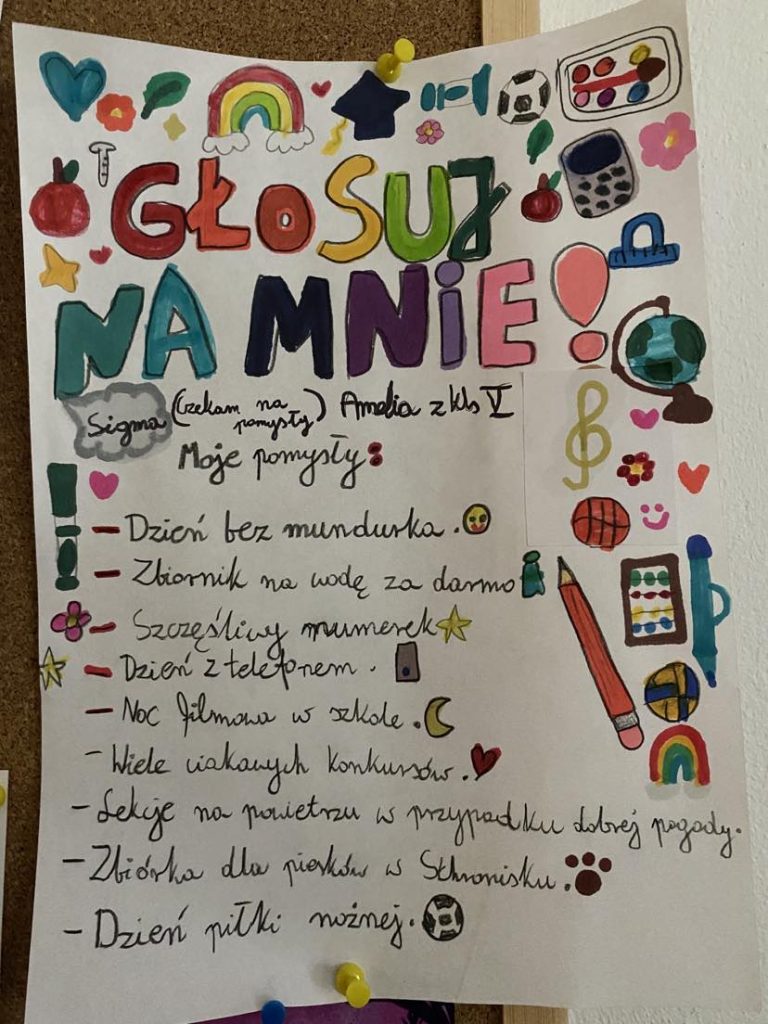 GŁOSUJ
NA MNiE!
Sigma (Czekam na pomysły) Amelia z kls V
Moje pomysły:
- Dzień bez mundurka.
- Zbiornik na wodę za darmo
- Szczęśliwy numerek
- Dzień z telefonem.
- Noc filmowa w szkole.
- Wiele ciakawych konkursów.
- Lekcje na powietrzu w przypadku dobrej pogady.
- Zbiórka dla piesków w Schronisku.
- Dzień piłki nożnej.